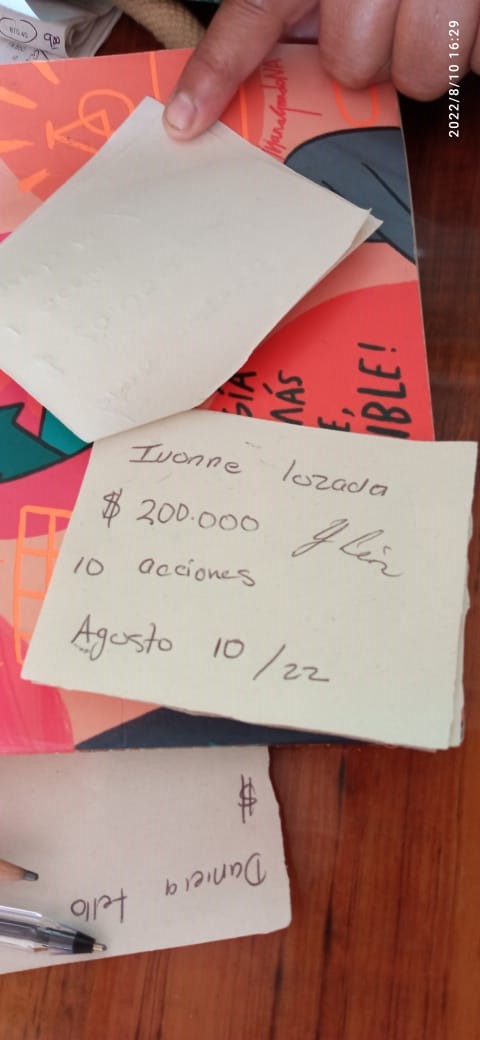 2022/8/10 16:29
MÁS
E,
IBLE!
Ivonne lozada
$ 200.000
10 acciones
Agosto 10/22
$
Daniela tello